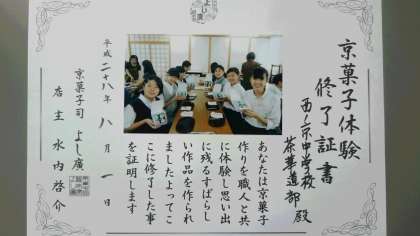 京菓子体験
修了証書
西ノ京中学校
茶華道部 殿
あなたは京菓子
作りを職人と共
に体験し思い出
に残るすばらし
い作品を作られ
ましたよってこ
こに修了した事
を証明します
平成二十八年 八月 一日
京菓子司 よし廣
店主 水内啓介